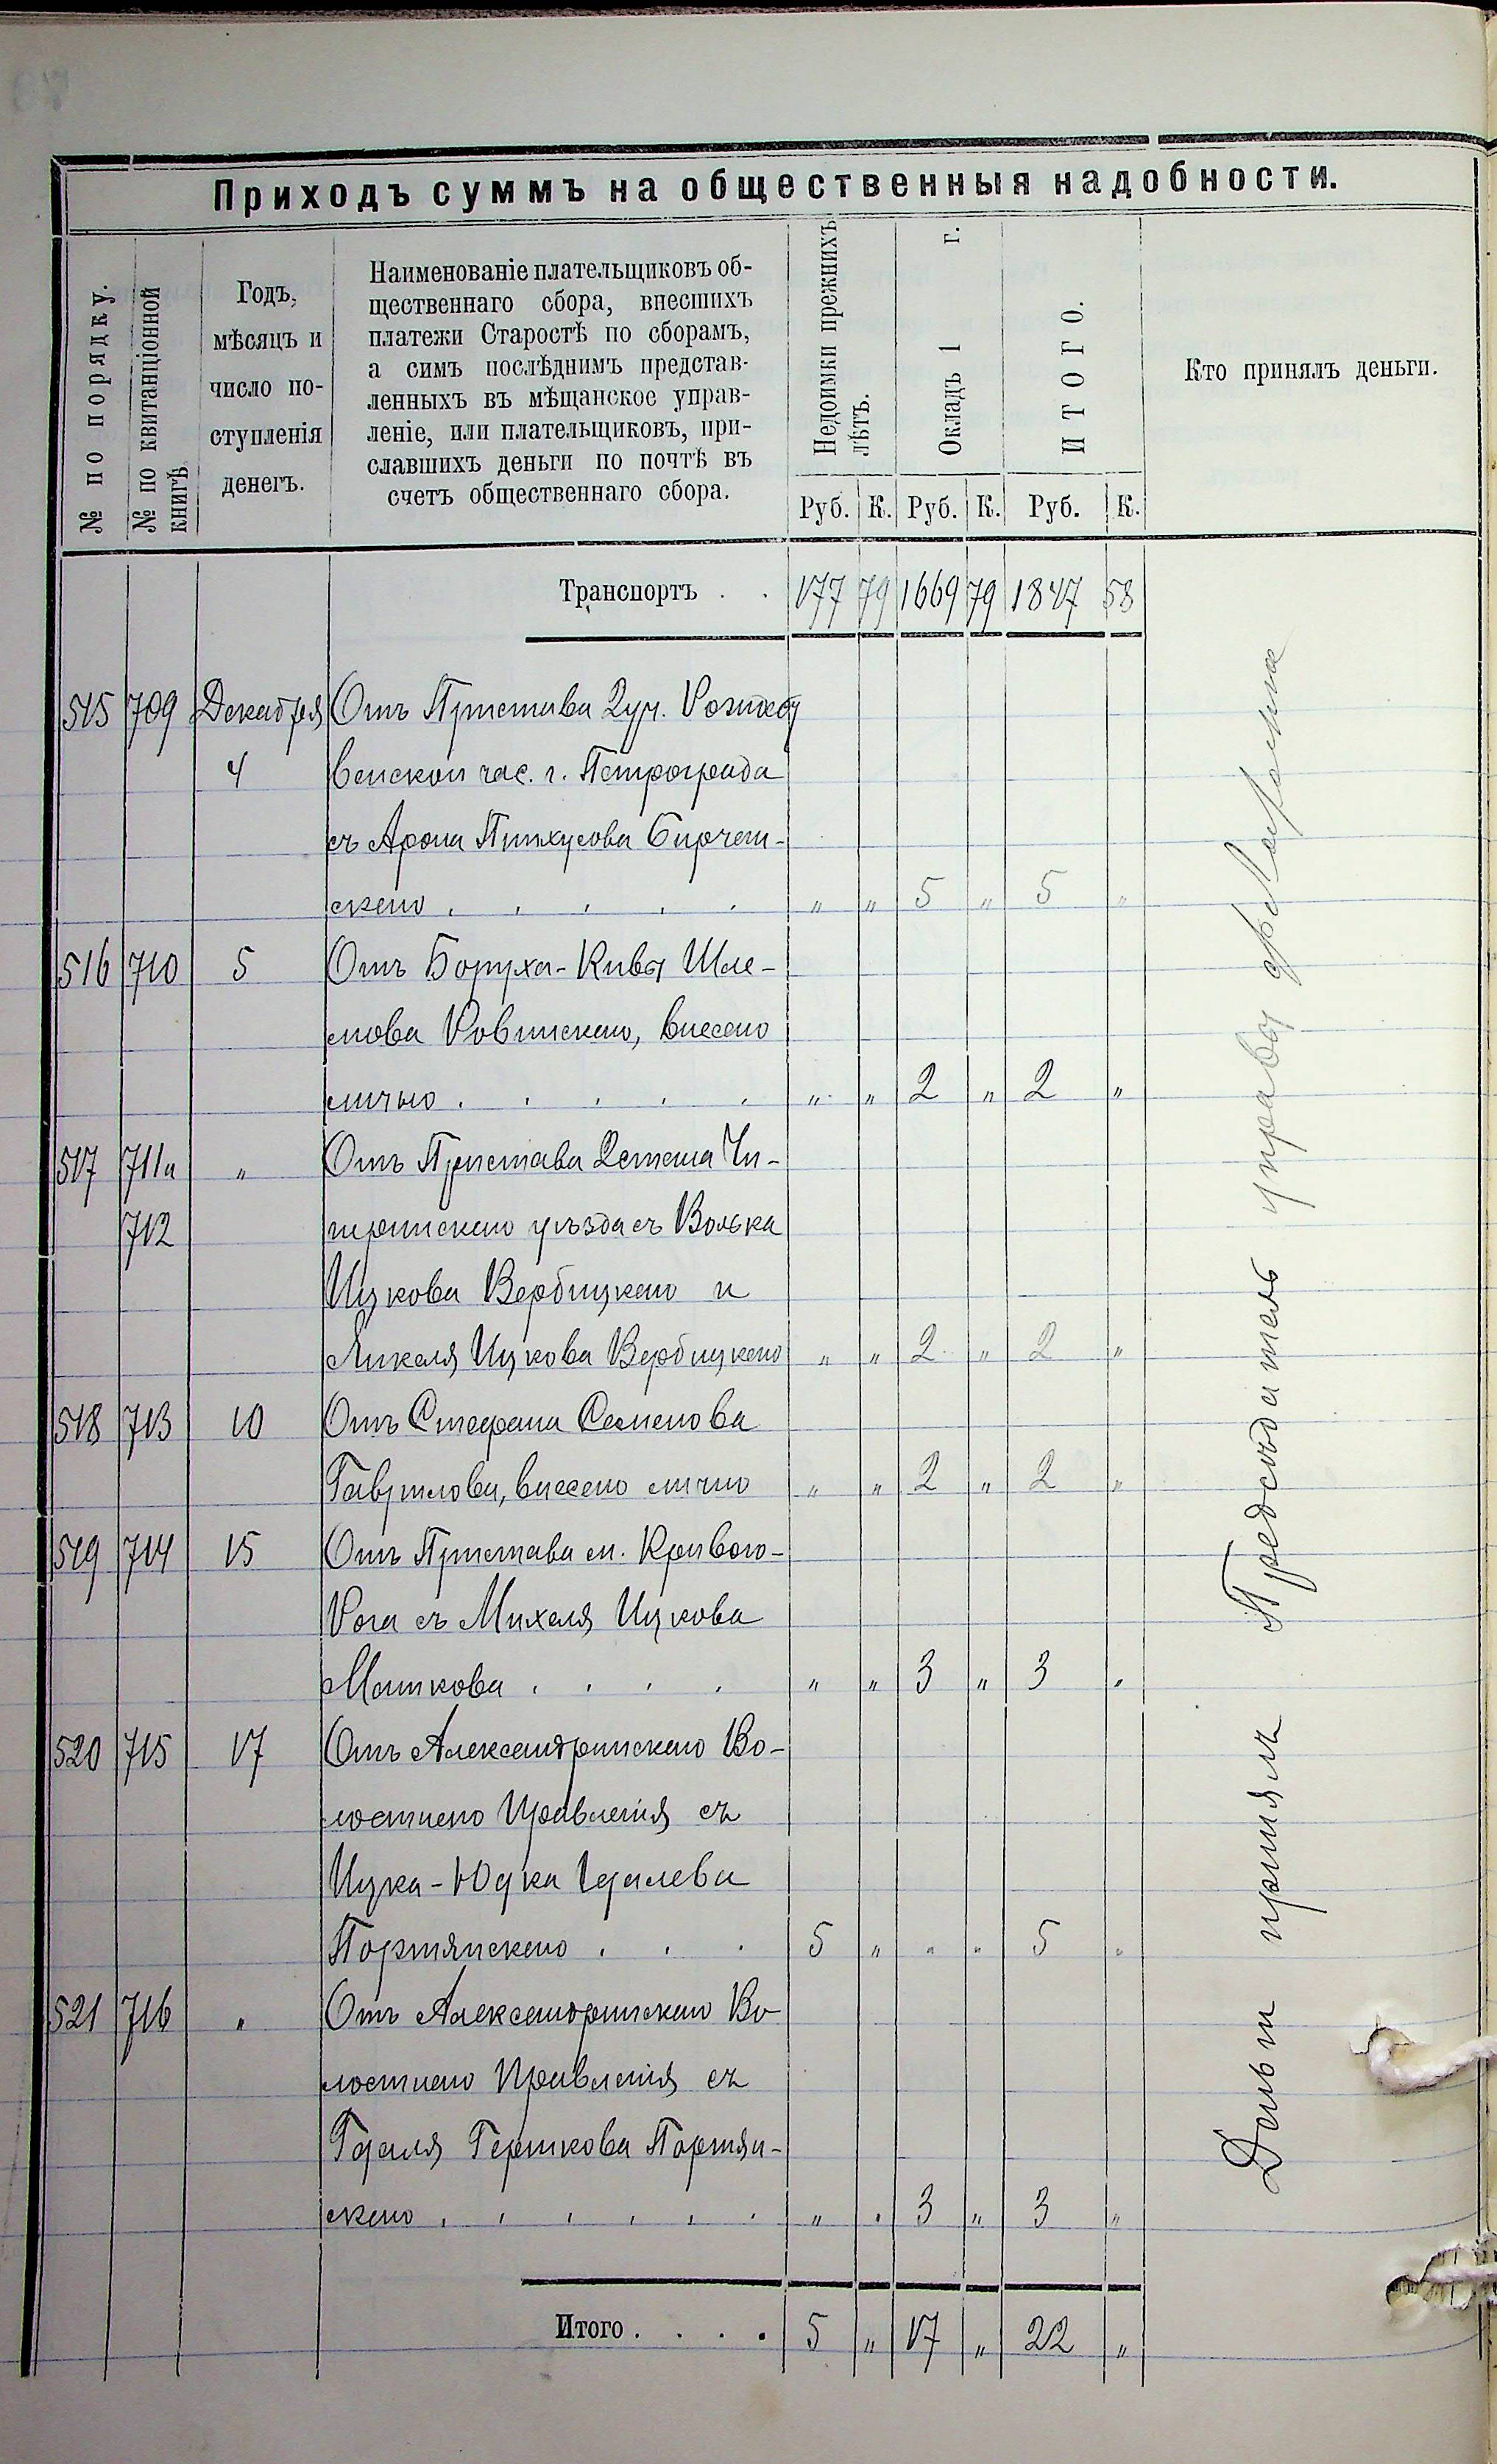 Приходъ суммъ на общественныя надобности.
№ по порядку.
№ по квитанціонной
книгѣ.
Годъ,
мѣсяцъ и
число по-
ступленія
денегъ.
Наименованіе плательщиковъ об-
щественнаго сбора, внесшихъ
платежи Старостѣ по сборамъ,
а симъ послѣднимъ представ-
ленныхъ въ мѣщанское управ-
леніе, или плательщиковъ, при-
славшихъ деньги по почтѣ въ
счетъ общественнаго сбора.
Недоимки прежнихъ
лѣтъ.
Окладъ 1 г.
ИТОГО.
Кто принялъ деньги.
Руб. К. Руб. К. Руб. К.
Транспортъ . . 177 79 1669 79 1847 58
515 709 Декабря Отъ Пристава 2 уч. Рождест
4 венской час. г. Петрограда
съ Арона Пинхусова
скаго . . . . . „ „ 5 „ 5 „
516 710 5 Отъ Боруха-Кивы Шле-
мова Ровинскаго, внесено
лично . . . . . „ „ 2 „ 2 „
517 711 и „ Отъ Пристава 2 стана Чи-
712 гиринскаго уѣзда съ Волька
Ицкова Вербицкаго и
Янкеля Ицкова Вербицкаго „ „ 2 „ 2 „
518 713 10 Отъ Стефана Семенова
Гаврилова, внесено лично „ „ 2 „ 2 „
519 714 15 Отъ Пристава м. Кривого-
Рога съ Михеля Ицкова
Машкова . . . . „ „ 3 „ 3 „
520 715 17 Отъ Александринскаго Во-
лостнаго Правленія съ
Ицка-Юдка Гдалева
Портянскаго . . . 5 „ „ „ 5 „
521 716 „ Отъ Александринскаго Во
лостнаго Правленія съ
Гдаля Гершкова Портян-
скаго . . . . . . „ „ 3 „ 3 „
Итого . . . . 5 „ 17 „ 22 „
Деньги принялъ Предсѣдатель управы